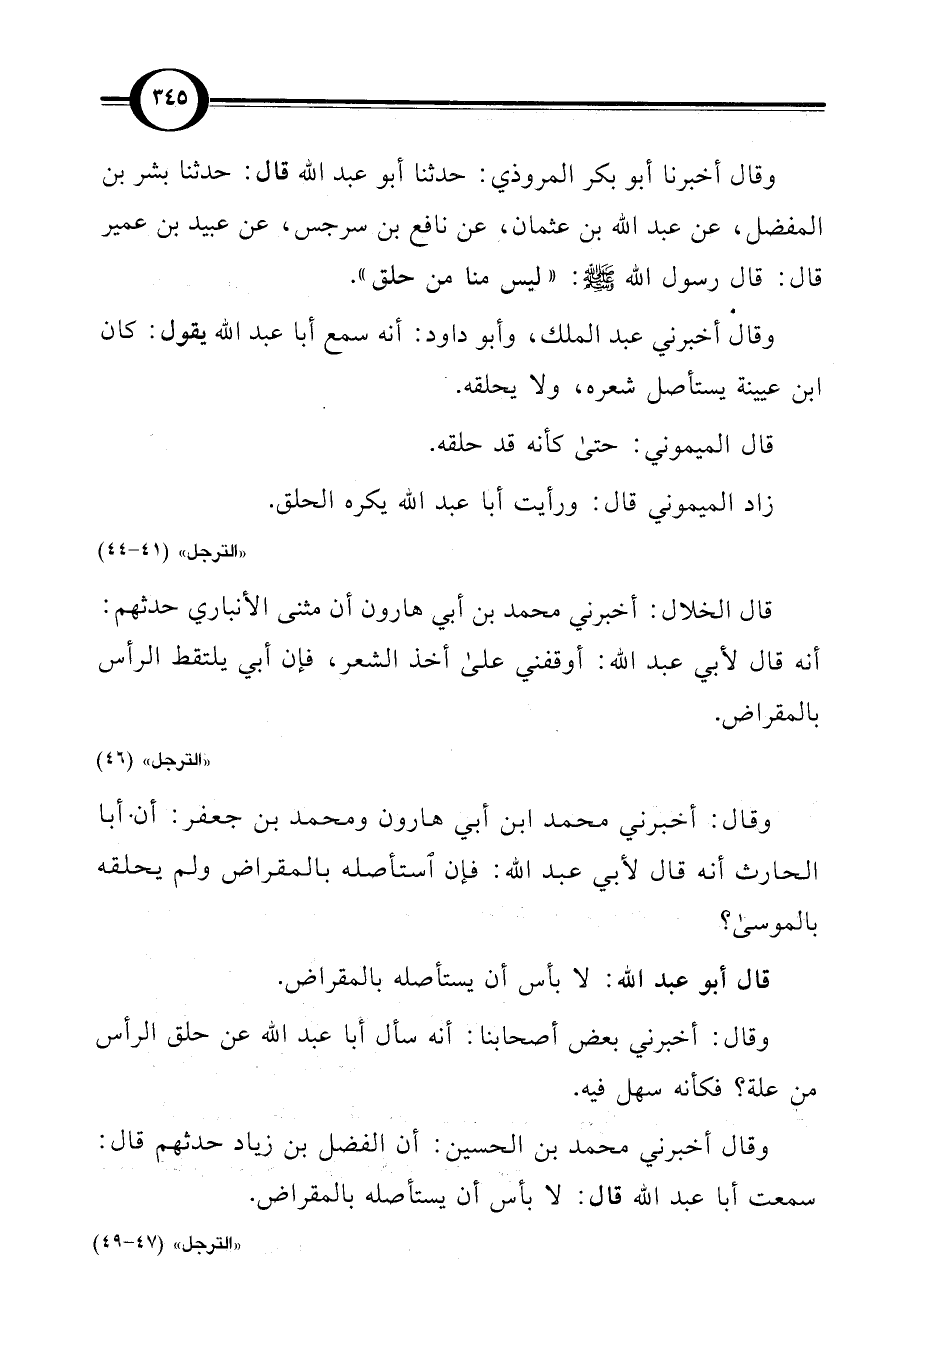 ٣٤٥
وقال أخبرنا أبو بكر المروذي: حدثنا أبو عبد الله قال: حدثنا بشر بن
المفضل، عن عبد الله بن عثمان، عن نافع بن سرجس، عن عبيد بن عمير
قال: قال رسول الله ﷺ: «ليس منا من حلق».
وقال أخبرني عبد الملك، وأبو داود: أنه سمع أبا عبد الله يقول: كان
ابن عيينة يستأصل شعره، ولا يحلقه.
قال الميموني: حتىٰ كأنه قد حلقه.
زاد الميموني قال: ورأيت أبا عبد الله يكره الحلق.
«الترجل» (٤١-٤٤)
قال الخلال: أخبرني محمد بن أبي هارون أن مثنى الأنباري حدثهم:
أنه قال لأبي عبد الله: أوقفني علىٰ أخذ الشعر، فإن أبي يلتقط الرأس
بالمقراض.
«الترجل» (٤٦)
وقال: أخبرني محمد ابن أبي هارون ومحمد بن جعفر: أن أبا
الحارث أنه قال لأبي عبد الله: فإن ٱستأصله بالمقراض ولم يحلقه
بالموسىٰ؟
قال أبو عبد الله: لا بأس أن يستأصله بالمقراض.
وقال: أخبرني بعض أصحابنا: أنه سأل أبا عبد الله عن حلق الرأس
من علة؟ فكأنه سهل فيه.
وقال أخبرني محمد بن الحسين: أن الفضل بن زياد حدثهم قال:
سمعت أبا عبد الله قال: لا بأس أن يستأصله بالمقراض.
«الترجل» (٤٧-٤٩)